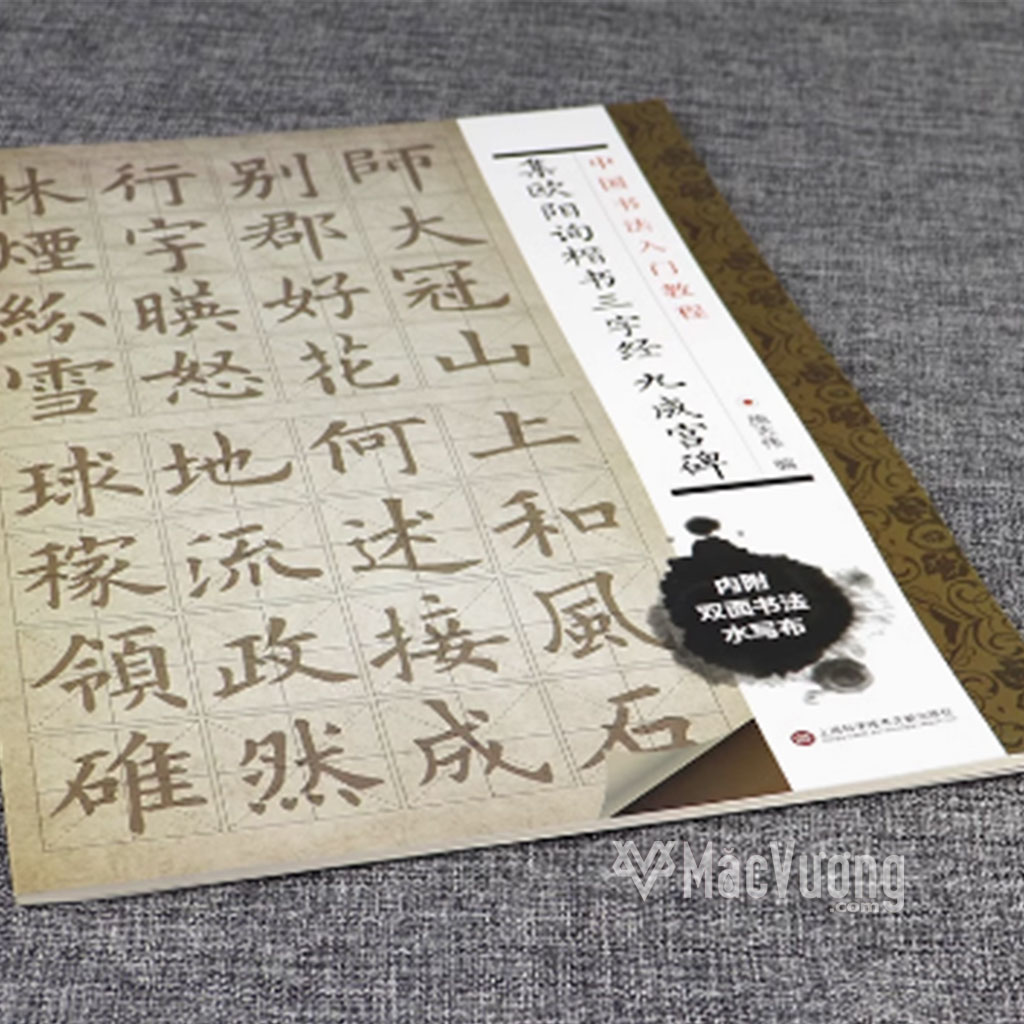 中国书法入门教程
集欧阳询楷书三字经 九成宫碑
编
内附
双面书法
水写布
上海科学技术文献出版社
師大冠山
別郡好花
行字暎怒
林煙紛雪
上和風石
何述接成
地流政然
球稼領碓
MăcVuong
.com